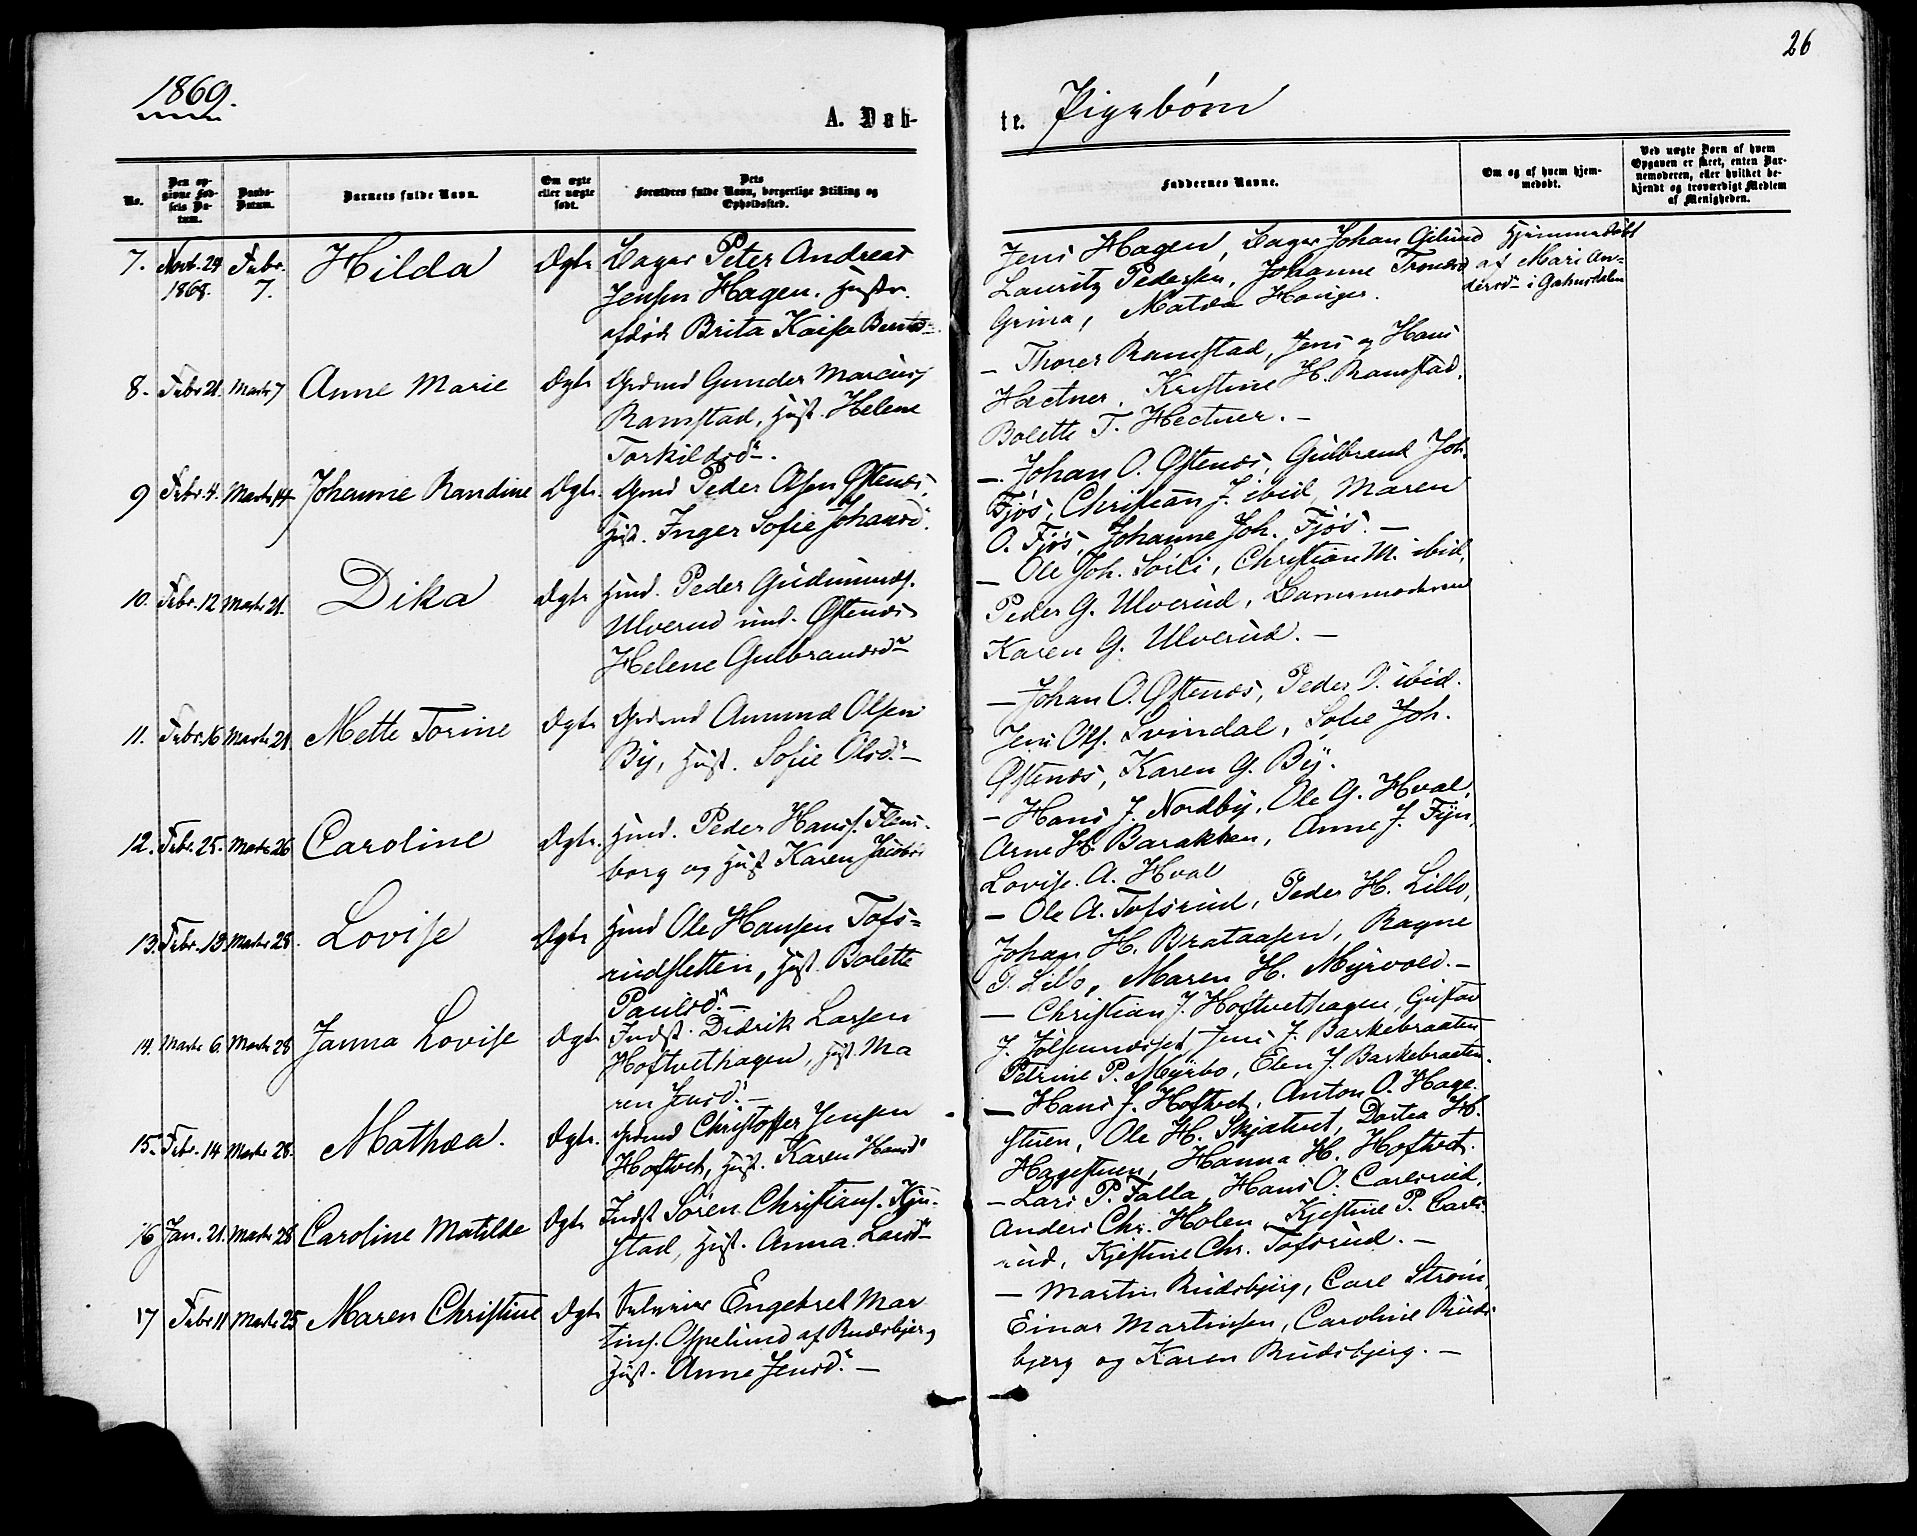 26
1869.
A. Døb-
te. Pigebørn
No.
Den op-
givne Fød-
sels Da-
tum.
Daabs-
Datum.
Barnets fulde Navn.
Om ægte
eller uægte
født.
Dets
Forældres fulde Navn, borgerlige Stilling og
Opholdssted.
Faddernes Navne.
Om og af hvem hjem-
medøbt.
Ved uægte Børn af hvem
Opgaven er skeet, enten Bar-
nemoderen, eller hvilket be-
kjendt og troværdigt Medlem
af Menigheden.
7. Novb. 24 1868. Febr. 7. Hilda Ægte Bager Peter Andreas
Jensen Hagen. Hustr.
afdød Brita Kaisa Berntsd.
Jens Hagen, Bager Johan Gilund
Lauritz Pedersen, Johanne Tronsrd
Grina, Matea Hanger.
Hjemmedøbt
af Mari An-
dersd.
8. Febr 21. Marts 7 Anne Marie Ægte Grdmd Gunder Marcus
Ramstad, Hust. Helene
Torkildsd.
- Thorer Ramstad, Jens og Hans
Hectner, Kristine H. Ramstad,
Bolette T. Hectner. -
9 Febr. 4. Marts 14 Johanne Randine Ægte. Gmd Peder Olsen Østenæs,
Hust. Inger Sofie Johansd.
-. Johan O. Østenæs, Gulbrand Joh.
Fjøs, Christian J. ibid, Maren
O. Fjøs, Johanne Joh. Fjøs. -
10. Febr. 12 Marts 21. Dika Ægte Hmd. Peder Gudmunds.
Ulverud und. Østenæs
Helene Gulbrandsd
- Ole Joh. Soili, Christian M. ibid,
Peder G. Ulverud, Barnemoderen
Karen G. Ulverud. -
11. Febr. 16 Marts 21 Mette Torine Ægte Grdmd Amund Olsen
By, Hust. Sofie Olsd. -
- Johan O. Østenæs, Peder O. ibid.
Jens Ols. Svindal, Sofie Joh.
Østenæs, Karen G. By.
12. Febr. 25. Marts 26 Caroline Ægte. Hmd. Peder Hans. Flens-
borg og Hust Karen Jacobs
- Hans J. Nordby, Ole G. Hval,
Arne H. Barakken, Anne J. Fyn,
Lovise A. Hval
13. Febr. 13 Marts 28. Lovise Ægte Hmd Ole Hansen Tofs-
rudsletten, Hust. Bolette
Paulsd. -
- Ole A. Tofsrud, Peder H. Lillo,
Johan H. Brataasen, Ragne
P. Lillo, Maren H. Myrvold. -
14. Marts 6. Marts 28 Janna Lovise Ægte Indst. Didrik Larsen
Hoftvethagen, Hust. Ma
ren Jensd. -
- Christian J. Hoftvethagen, Gustav
J. Jens J. Barkebraaten
Petrine P. Myrbo, Elen J. Barkebraaten.
15. Febr. 14 Marts 28. Mathea. Ægte. Grdmd Christoffer Jensen
Hoftvet, Hust. Karen Hansd
- Hans J. Hoftvet, Anton O. Hage-
stuen, Ole H. Skjatvet, Dortea H.
Hagestuen, Hanna H. Hoftvet.
16 Jan. 21. Marts 28 Caroline Matilde Ægte Indst Søren Christians. Kju-
stad, Hust. Anna Larsd
- Lars P. Falla, Hans O. Carlsrud,
Anders Chr. Holen, Kjestine P. Carls-
rud, Kjestine Chr. Tofsrud. -
17 Febr 11 Marts 25 Maren Christine Ægte Engebret Mar
tins. Ospelund af Rudsbjerg
Hust. Anne Jensd. -
- Martin Rudsbjerg, Carl Strøm,
Einar Martinsen, Caroline Ruds-
bjerg og Karen Rudsbjerg. -